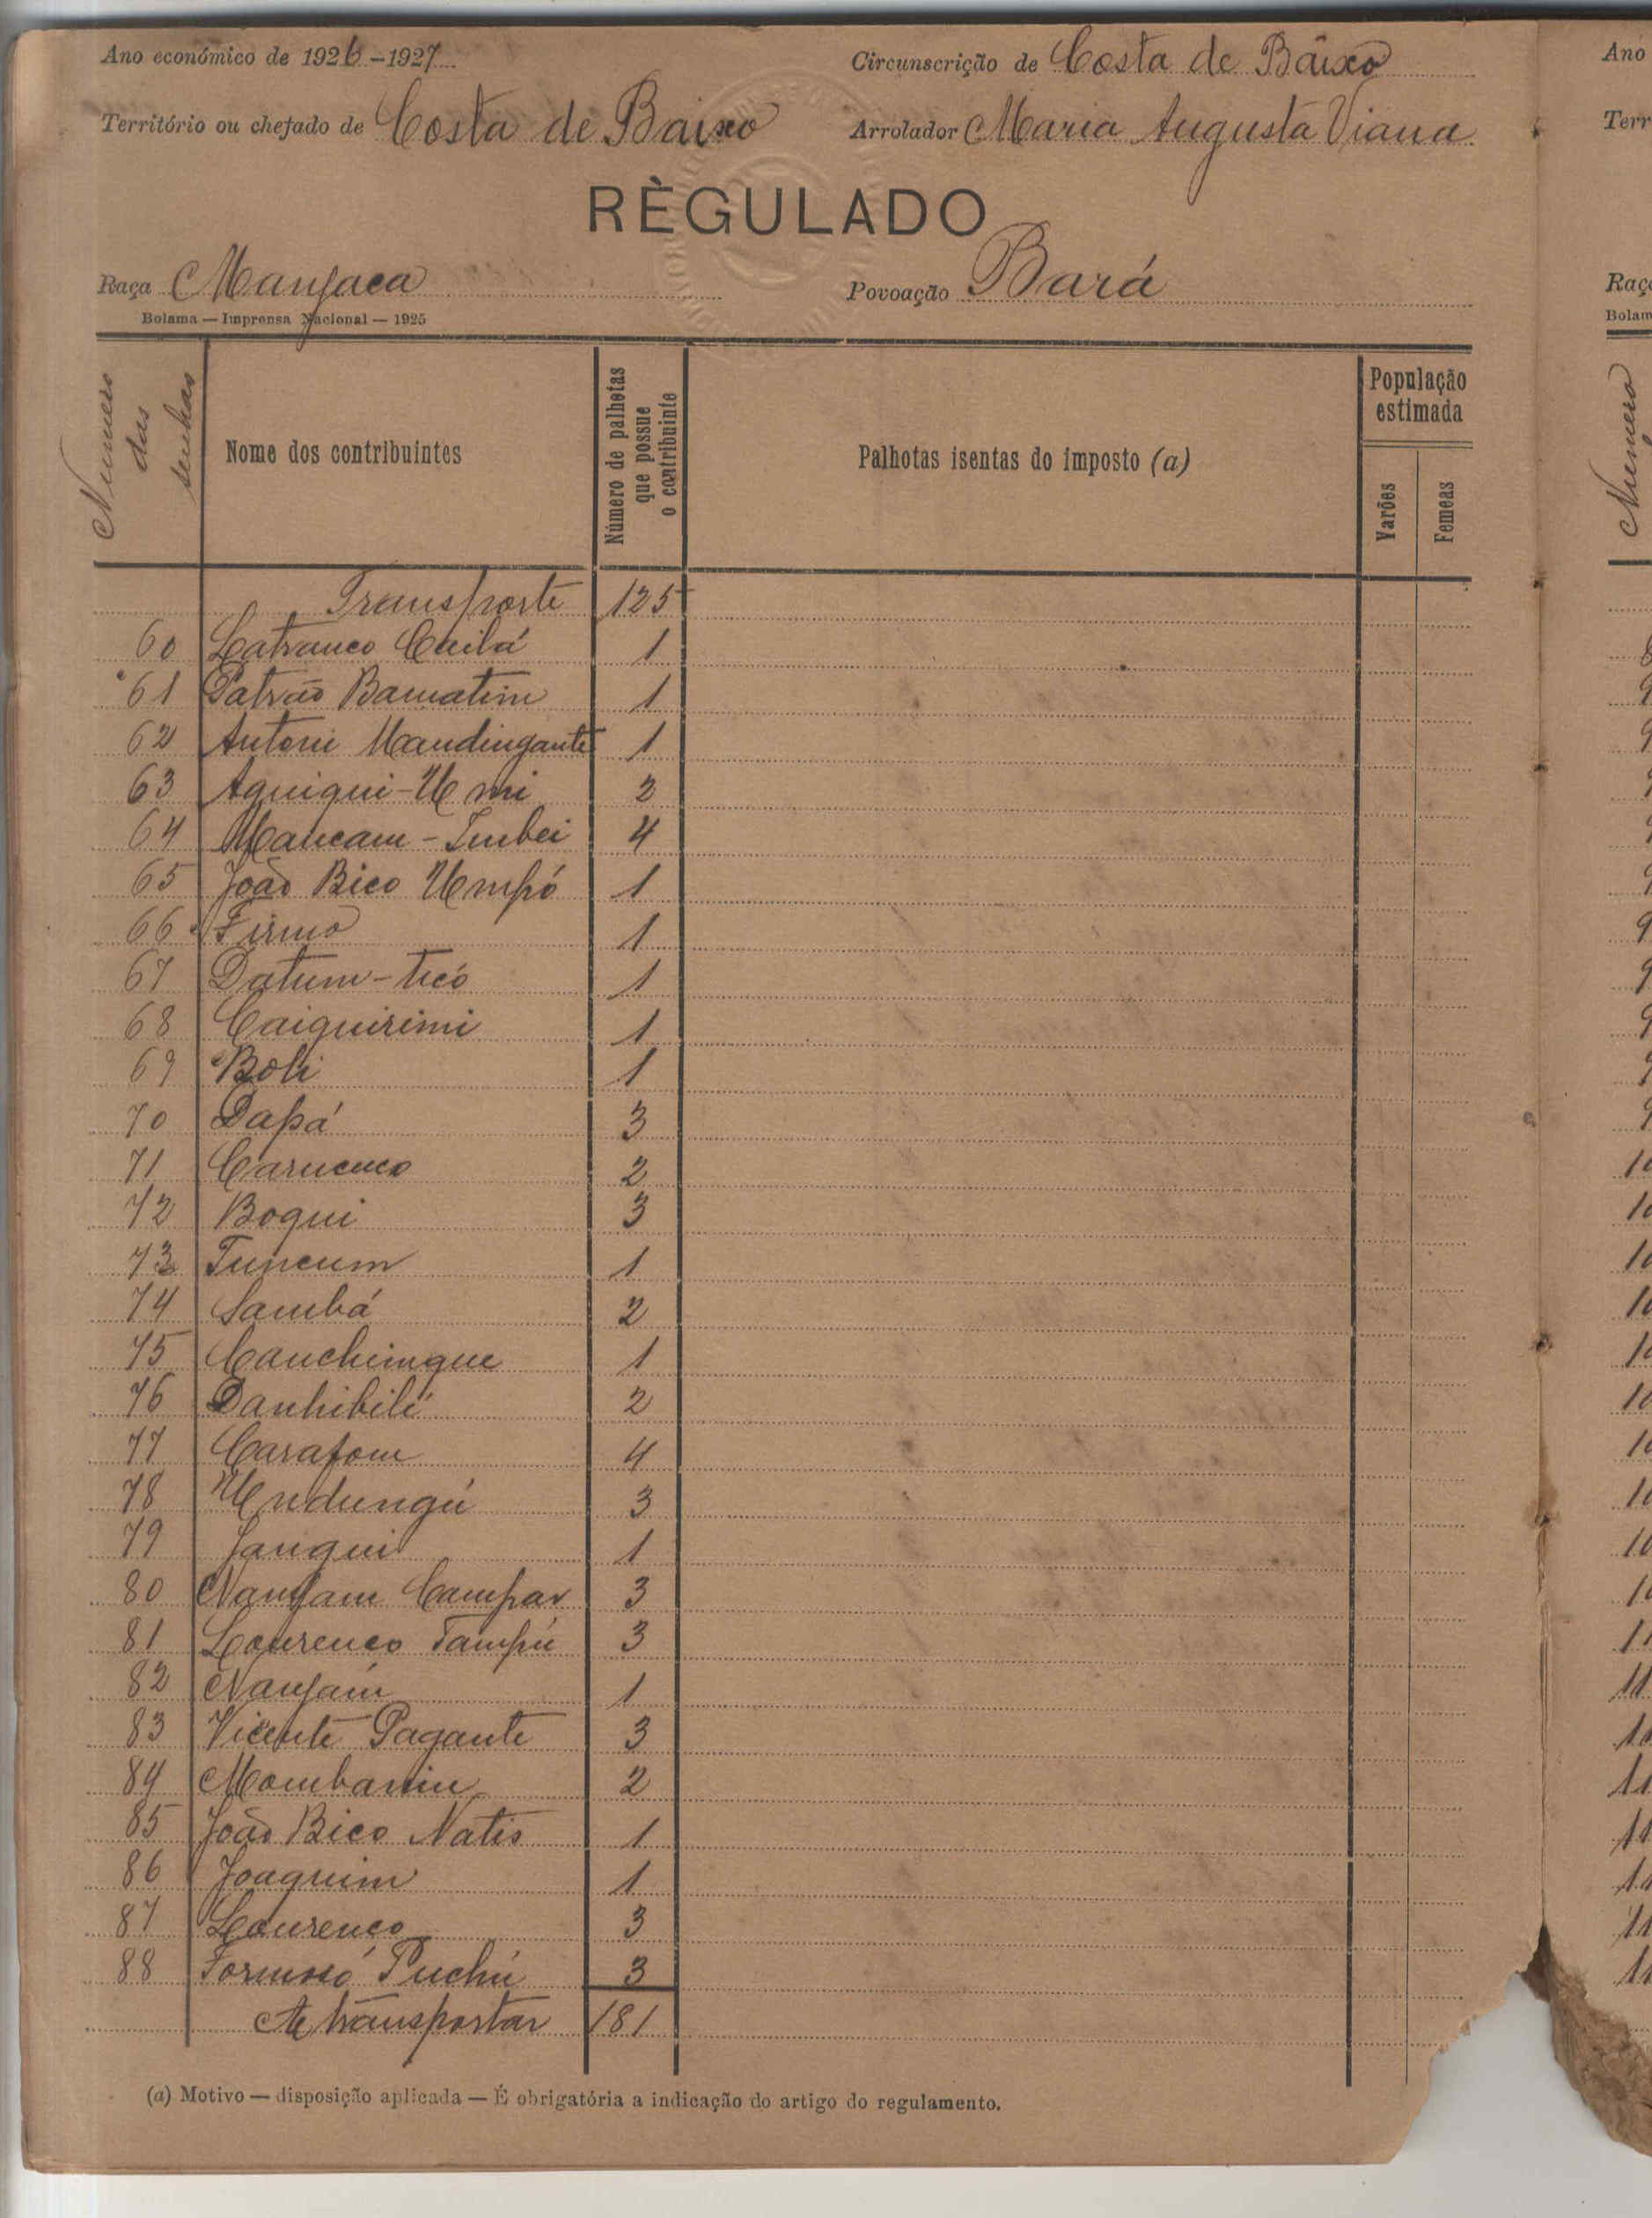 Ano económico de 1926-1927
Circunscrição de Costa de Baixo
Território ou chefado de Costa de Baixo
Arrolador Maria Augusta Viana
RÈGULADO
Raça Manjaca
Povoação Bará
Bolama — Imprensa Nacional — 1925
Numero das senhas
Nome dos contribuintes
Número de palhetas que possue o contribuinte
Palhotas isentas do imposto (a)
População estimada
Varões
Femeas
Transporte 125
60 Latranco Cailá 1
61 Patrão Bamatim 1
62 Antoni Mandingante 1
63 Aquiqui-Umi 2
64 Mancam-Imbei 4
65 João Bico Umpó 1
66 Firmo 1
67 Datum-ticó 1
68 Caiquirimi 1
69 Boli 1
70 Dapá 3
71 Carucuco 2
72 Boqui 3
73 Tuncum 1
74 Sambá 2
75 Cauchimque 1
76 Danhibilé 2
77 Carafom 4
78 Undungú 3
79 Janqui 1
80 Nanjam Campar 3
81 Lourenco Tampú 3
82 Nanjam 1
83 Vicente Pagante 3
84 2
85 João Bico Natis 1
86 Joaquim 1
87 Lourenco 3
88 Formosó Puchú 3
A transportar 181
(a) Motivo — disposição aplicada — É obrigatória a indicação do artigo do regulamento.
Ano
Terr
Raç
Bolam
Numero